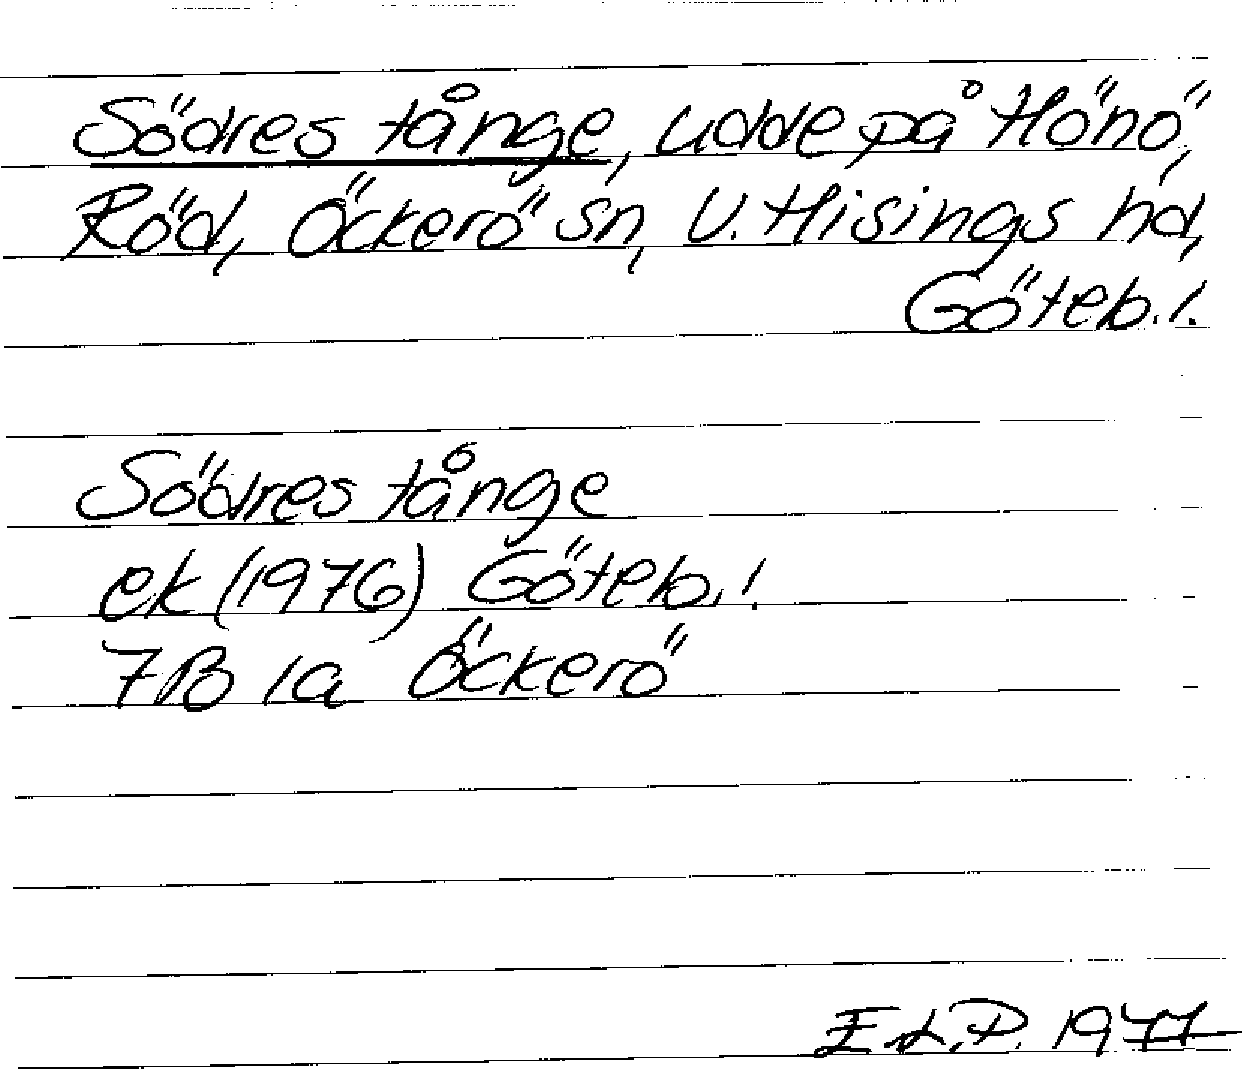 Södres tånge, udde på Hönö,
Röd, Öckerö sn, V. Hisings hd,
Göteb. l.
Södres tånge
ek (1976) Göteb. l.
7B 1a Öckerö
E.L.P. 1977